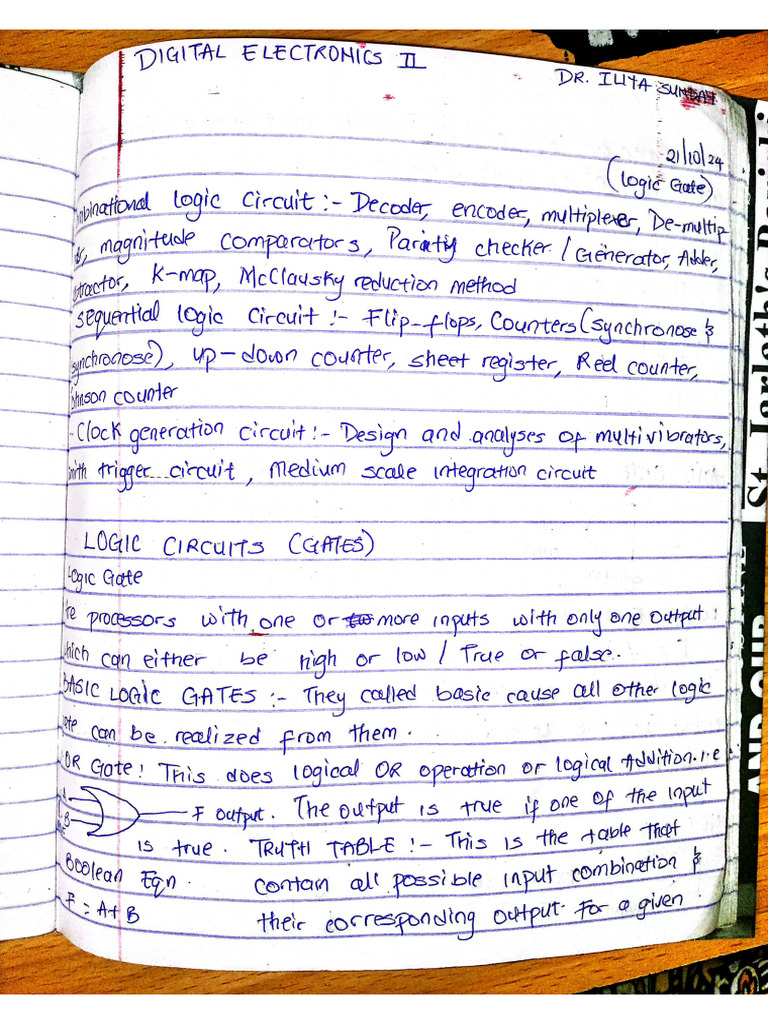 DIGITAL ELECTRONICS II
DR. ILIYA SUNDAY
21/10/24
(Logic Gate)
mbinational logic circuit :- Decoder, encoder, multiplexer, De-multip
magnitude comparators, Parity checker / Generator, Adder,
btractor, K-map, McClausky reduction method
Sequential logic circuit :- Flip-flops, Counters (synchronose &
synchronose), up-down counter, sheet register, Reel counter,
ohnson counter
- Clock generation circuit :- Design and analyses of multivibrators,
mith trigger circuit, Medium scale integration circuit
LOGIC CIRCUITS (GATES)
Logic Gate
re processors with one or more inputs with only one output
hich can either be high or low / True or false.
BASIC LOGIC GATES :- They called basic cause all other logic
ate can be realized from them.
OR Gate! This does logical OR operation or logical Addition. i.e
A
B
F output. The output is true if one of the input
is true. TRUTH TABLE :- This is the table that
Boolean Eqn. contain all possible input combination &
F = A+B their corresponding output. For a given
St. Jarlath's
AND OUR